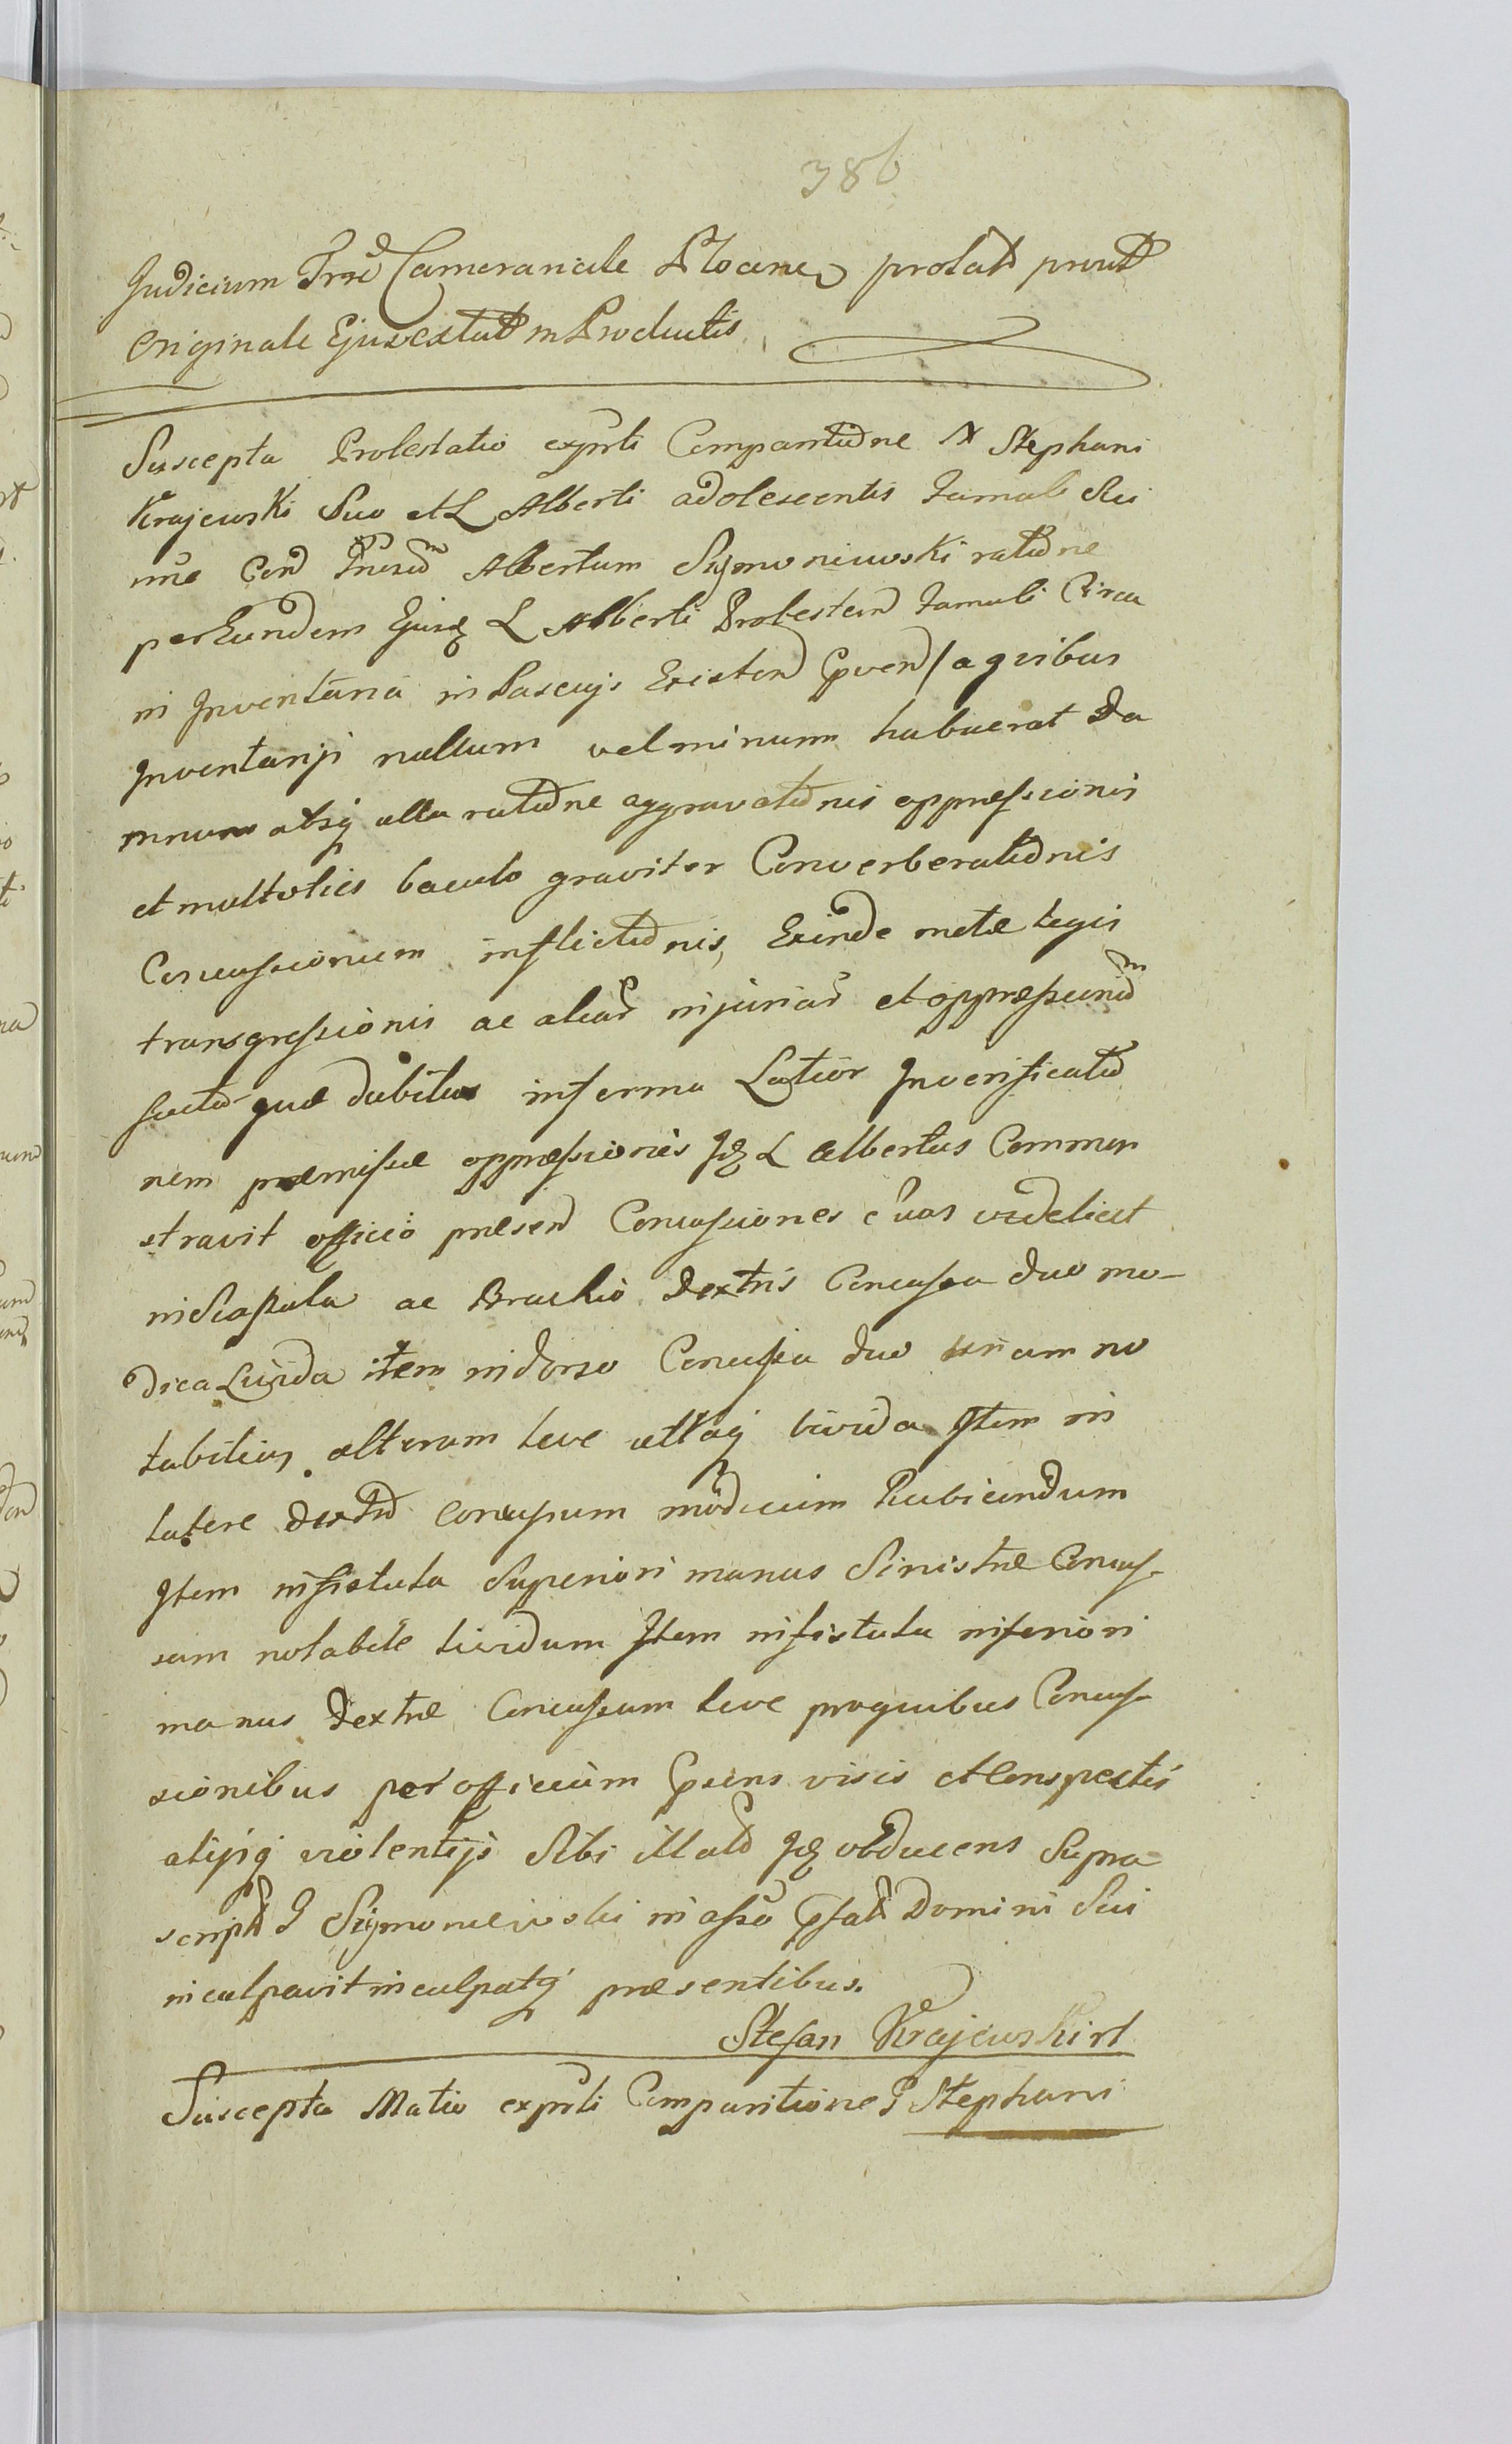 386
Judicium Trrē Cameranale Plocense prolatt proutt
originale Ejus extatt in Productis
Suscepta Protestatio exprti Comparitione N Stephani
Krajewski Suo et L Alberti adolescentis famuli Sui
nne Con Albertum Szymoniewski ratione
per Eundem Ejusq L Alberti Protestan famuli Circa
in Inventaria in Pascuis Existen / a quibus
Inventarijs nullum vel minimum habuerat Da
mnum absq ulla ratione aggravationis oppressionis
et multoties baculo graviter Converberationis
Concussionum inflictionis, Exinde metae legis
transgressionis ac aliar injuriar et oppressionum
factar quae dubitus informa Latior In verificatio
nem praemissae oppressionis Idq L Albertus Commen
stravit officio praesen Concussiones ejus videlicet
in Scapula ac Brachio Dextris Concussa duo mo-
dica Livida item in dorso Concussa duo unum no
tabilius alterum leve utraq livida Item in
latere dextro concussum modicum Rubicundum
Item in fistula Superiori manus Sinistrae Concus-
sum notabile lividum Item in fistula inferiori
manus Dextrae Concussum leve pro quibus Concus-
sionibus per officium psens visis et Conspectis
alijsq violentijs Sibi illatis Idq obducens Supra
script G Szymoniewski in assō pfati Domini Sui
inculpavit inculpatq praesentibus.
Stefan Krajewski
Suscepta Matio exprti Comparitione G Stephani